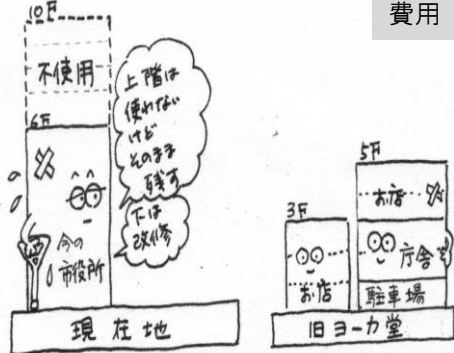 費用
10F
不使用
6F
今の
市役所
上階は
使わない
けど
そのまま
残す
下は
改修
現在地
3F
お店
5F
お店
庁舎
駐車場
旧ヨーカ堂